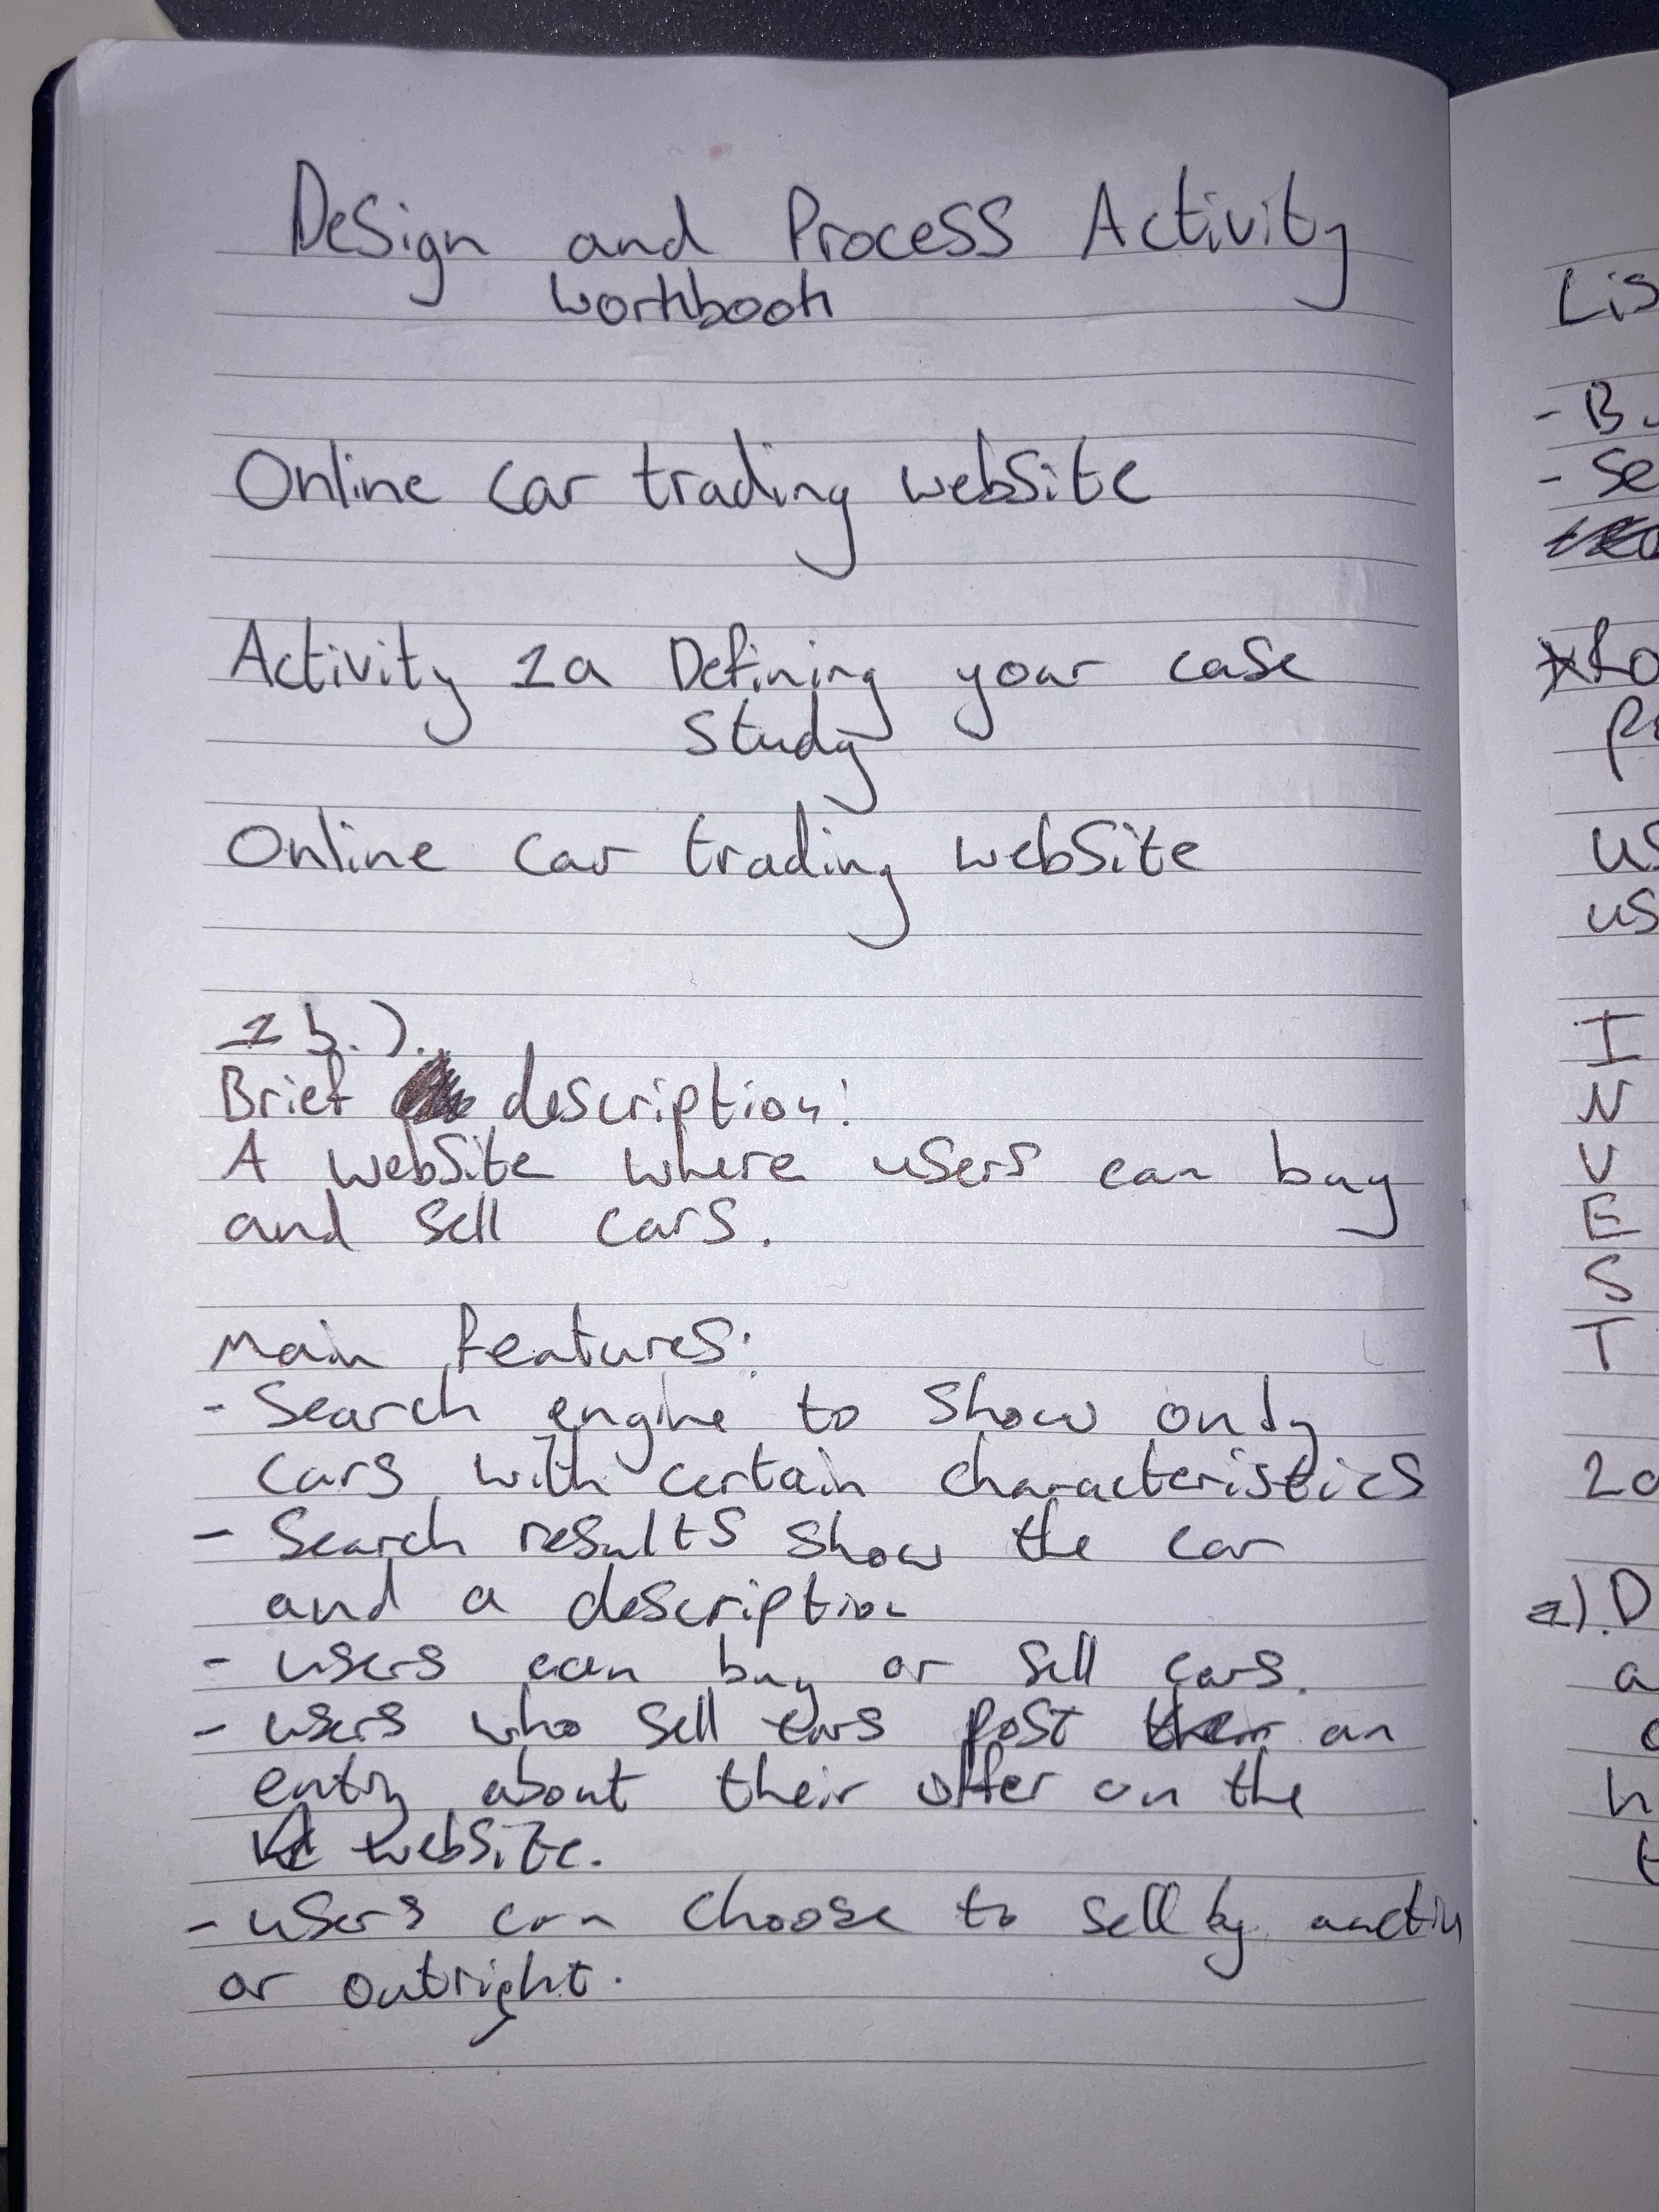 Design and Process Activity
Workbook
Online car trading website
Activity 1a Defining your case
study
Online car trading website
1b.).
Brief description:
A website where users can buy
and sell cars.
Main features:
- Search engine to show only
cars with certain characteristics
- Search results show the car
and a description
- users can buy or sell cars.
- users who sell cars post an
entry about their offer on the
website.
- users can choose to sell by auction
or outright.
Lis
- B
- Se
us
us
I
N
V
E
S
T
2a
a). D
a
h
t